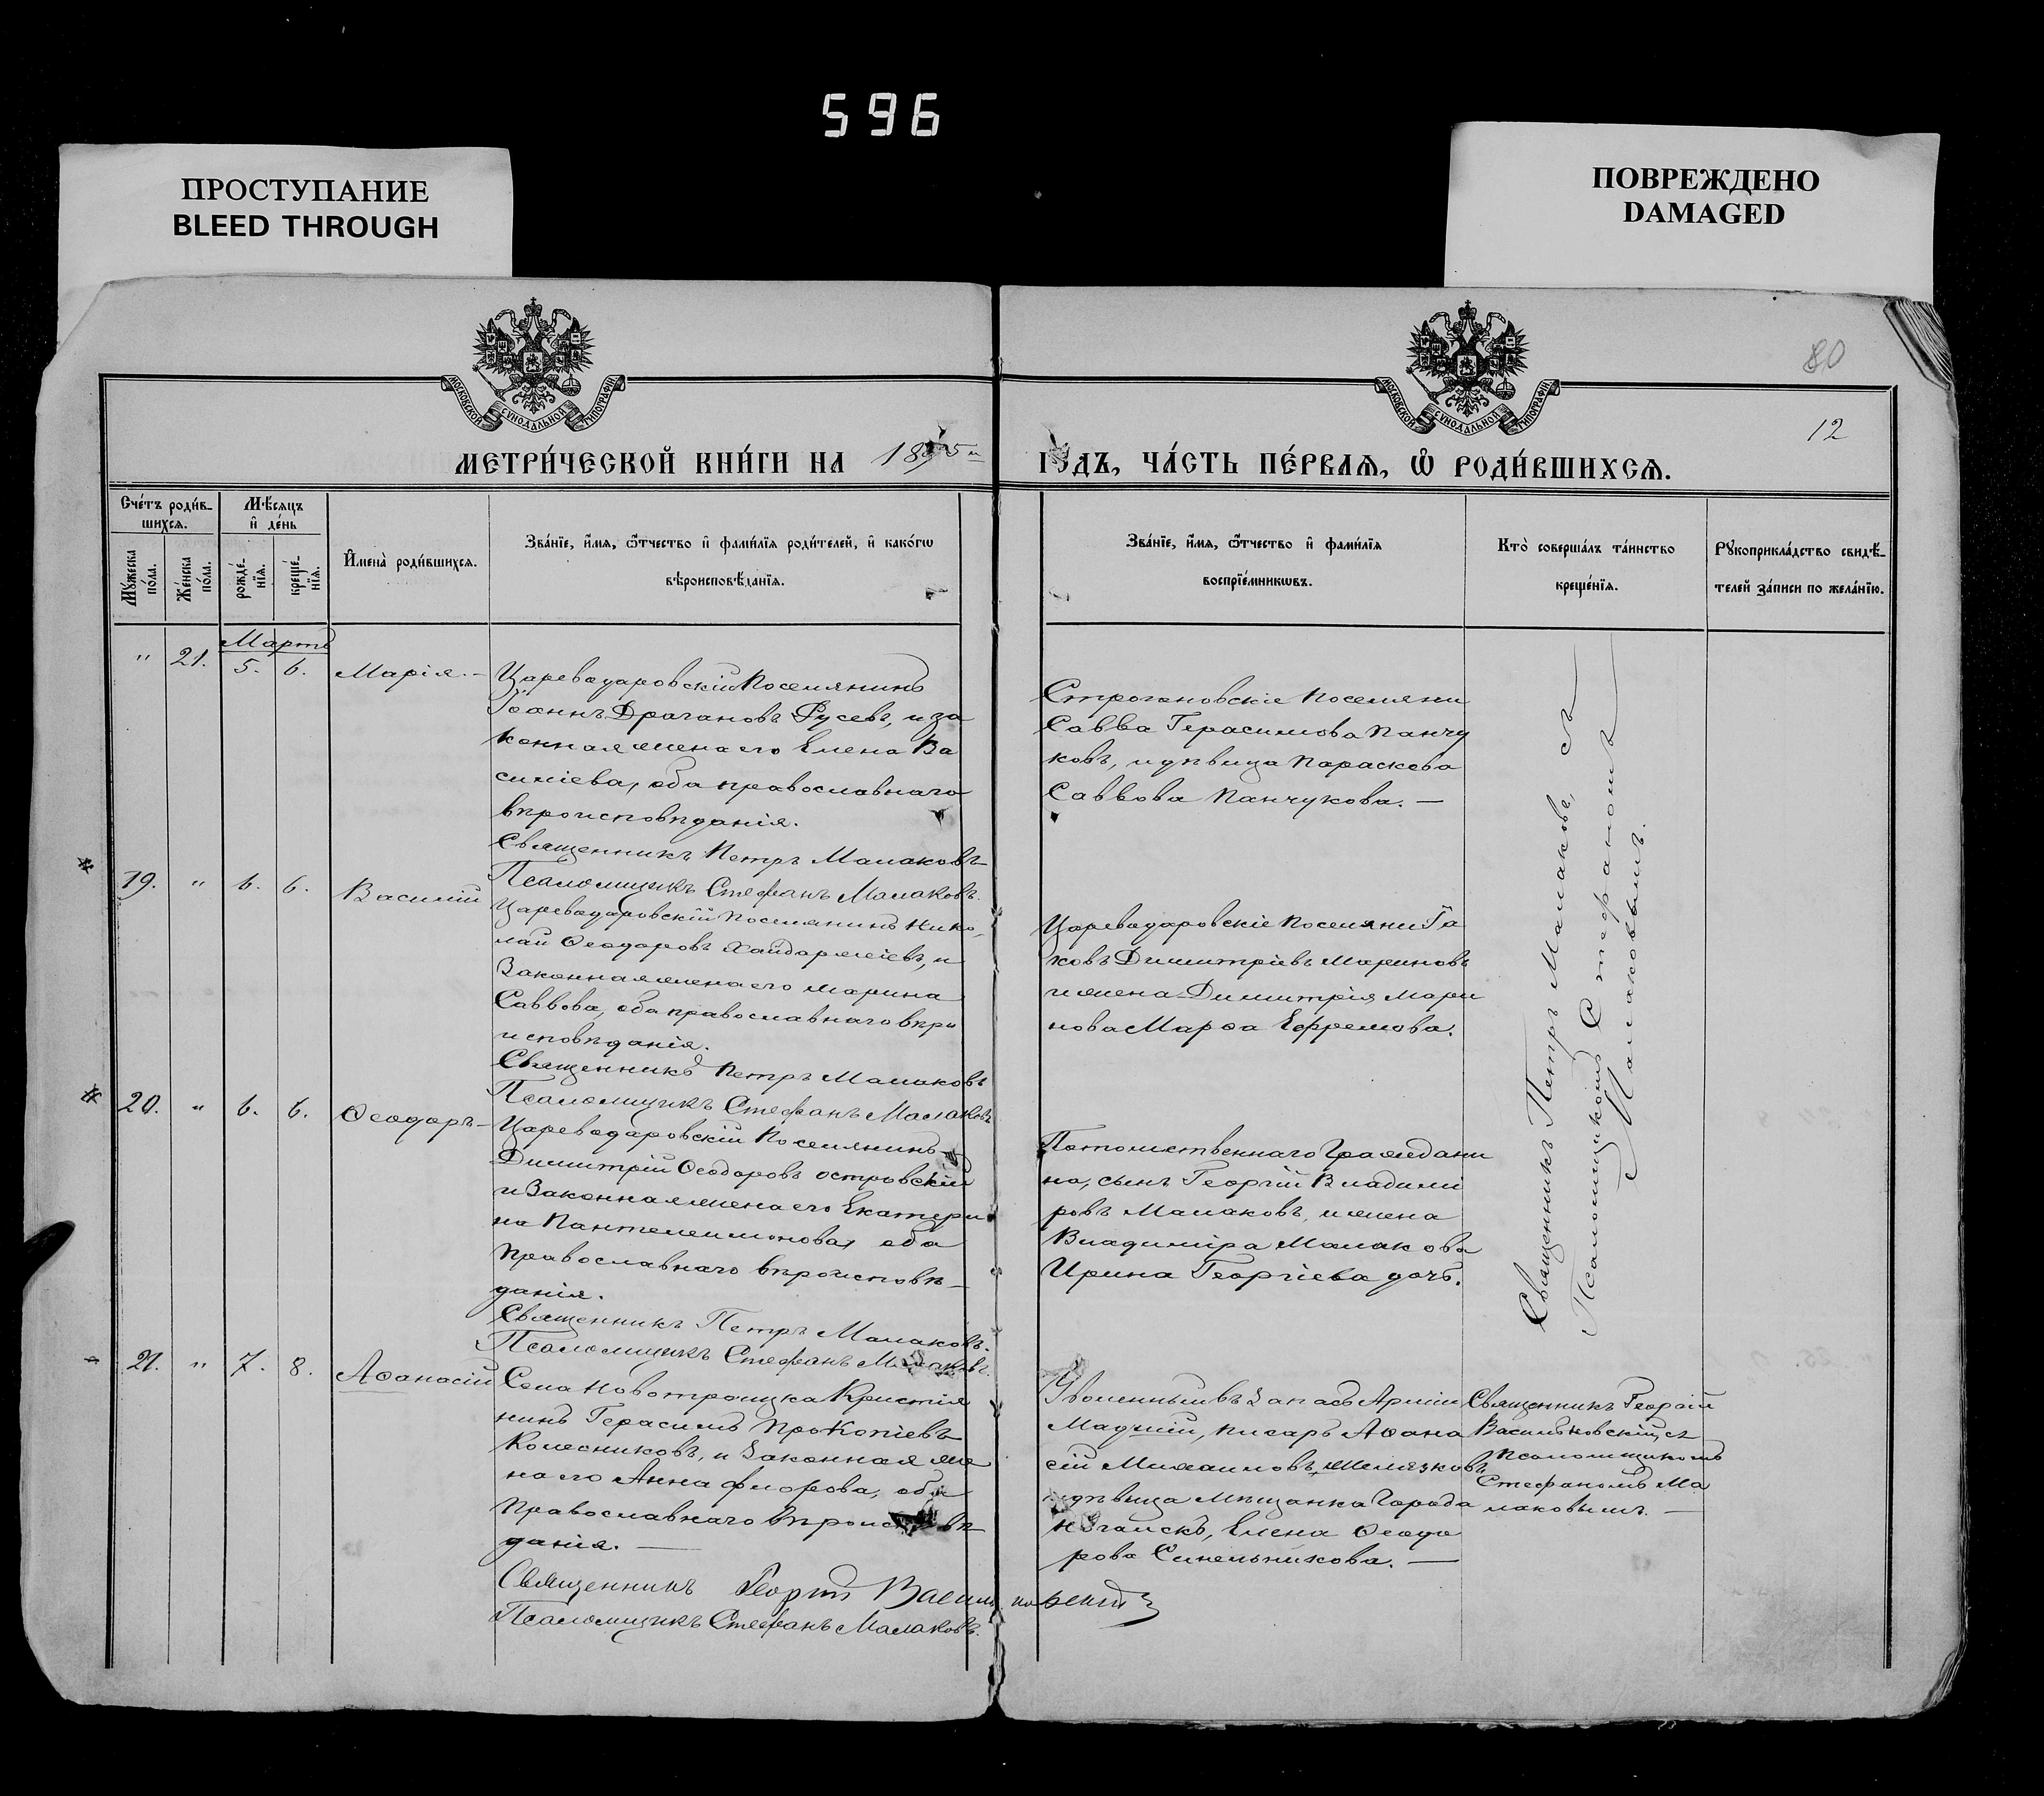 596
ПРОСТУПАНИЕ
BLEED THROUGH
ПОВРЕЖДЕНО
DAMAGED
МОСКОВСКОЙ СѴНОДАЛЬНОЙ ТИПОГРАФІИ
МОСКОВСКОЙ СѴНОДАЛЬНОЙ ТИПОГРАФІИ
80
12
МЕТРИ́ЧЕСКОЙ КНИ́ГИ НА 1895 и
ГОДЪ, ЧА́СТЬ ПЕ́РВАѦ, Ѡ҆ РОДИ́ВШИХСѦ.
Сче́тъ роди́в-
шихсѧ.
Мѣ́сѧцъ
и҆ де́нь
Мꙋ́жеска
по́ла.
Же́нска
по́ла.
рожде́-
нїѧ.
креще́-
нїѧ.
И҆мена̀ роди́вшихсѧ.
Зва́нїе, и҆́мѧ, ѻ҆́тчество и҆ фами́лїѧ роди́телей, и҆ како́гѡ
вѣроисповѣ́данїѧ.
Зва́нїе, и҆́мѧ, ѻ҆́тчество и҆ фами́лїѧ
воспрїе́мникѡвъ.
Кто̀ соверша́лъ та́инство
креще́нїѧ.
Рꙋкоприкла́дство свидѣ́-
телей за́писи по жела́нїю.
Мартъ
" 21. 5. 6. Марія.-
Царевадаровскій Поселянинъ
Іоаннъ Драгановъ Русевъ, и за
конная жена его Елена Ва
силіева, оба православнаго
вѣроисповѣданія.
Священникъ Петръ Малаковъ
Псаломщикъ Стефанъ Малаковъ.
Строгановскіе Поселяни
Савва Герасимова Панчу
ковъ, и дѣвица Параскева
Саввова Панчукова. —
19. " 6. 6. Василій
Царевадаровскій Поселянинъ Нико-
лай Ѳеодоровъ Хайдаржіевъ, и
Законная жена его Марина
Саввова, оба православнаго вѣро
исповѣданія.
Священникъ Петръ Малаковъ
Псаломщикъ Стефанъ Малаковъ
Царевадаровскіе Поселяни Іа
ковъ Димитріевъ Мариновъ
и жена Димитрія Мари
нова Марѳа Ефремова.
20. " 6. 6. Ѳеодоръ-
Царевадаровскій Поселянинъ
Димитрій Ѳеодоровъ Островскій
и Законная жена его Екатери
на Пантелеимонова, оба
Православнаго вѣроисповѣ-
данія.
Священникъ Петръ Малаковъ.
Псаломщикъ Стефанъ Малаковъ.
Потомственнаго Граждани
на, сынъ Георгій Владими
ровъ Малаковъ, и жена
Владиміра Малакова
Ирина Георгіева дочь.
Священникъ Петръ Малаковъ, съ
Псаломщикомъ Стефаномъ
Малаковымъ.
21. " 7. 8. Аѳанасій
Села Новотроицка Кристія
нинъ Герасимъ Прокопіевъ
Колесниковъ, и Законная же
на его Анна Флорова, оба
Православнаго вѣроисповѣ
данія. —
Священникъ Георгій Васильковскій
Псаломщикъ Стефанъ Малаковъ.
Уволенный въ Запасъ Арміи
Младшій, писарь Аѳана
сій Михаиловъ Шелязковъ
и дѣвица Мѣщанка Города
Ногайскъ, Елена Ѳеодо
рова Синельникова. —
Священникъ Георгій
Васильковскій съ
Псаломщикомъ
Стефаномъ Ма
лаковымъ. —